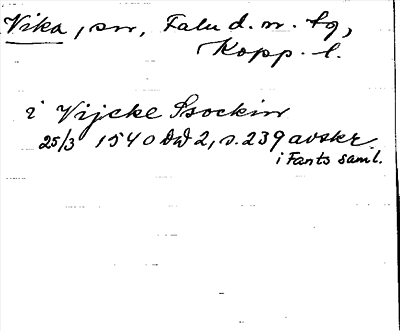 Vika, sn, Falu d. m. tg,
Kopp. l.
i Vijcke Ssockin
25/3 1540 DW 2, s. 239 avskr.
i Fants saml.